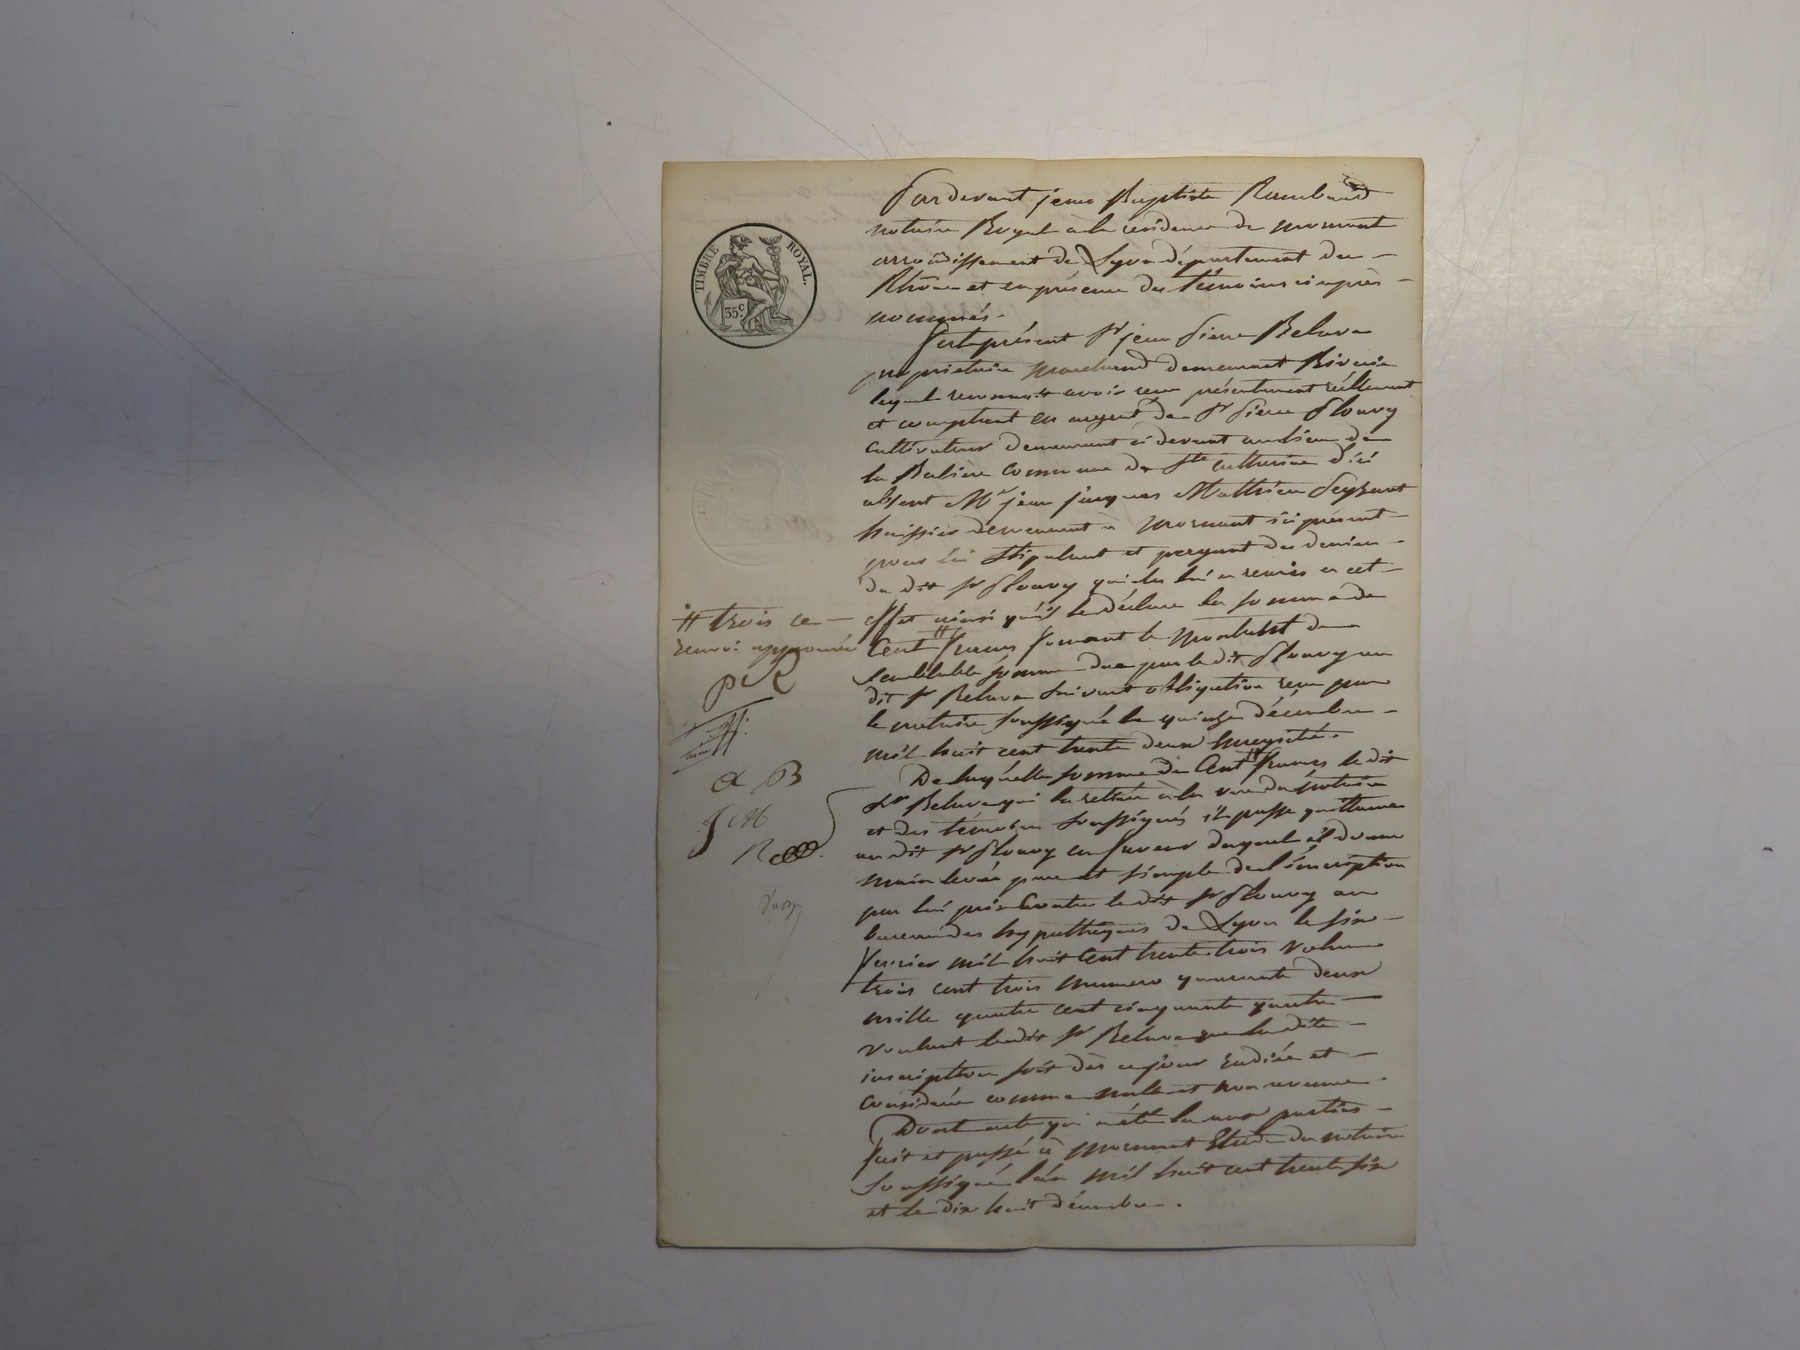 TIMBRE ROYAL.
35 c
Pardevant jean Baptiste Rambaud
notaire Royal à la residence de mornant
arrondissement de Lyon département du
Rhône et en présence des témoins ci après
nommés.
fut présent Sr jean Pierre Beluze
proprietaire marchand demeurant Riverie
lequel reconnait avoir reçu présentement réellement
et comptant en argent de Sr Pierre Flouvy
cultivateur demeurant ci devant au lieu de
la commune de Ste Catherine d'ici
absent Me jean jacques Mathieu
huissier demeurant à mornant ici présent
pour lui stipulant et payant des deniers
du dit Sr Flouvy qui les lui a remis a cet
effet ainsi qu'il le déclare la somme de
# trois ce
renvoi approuvé
Cent # francs formant le montant de
semblable somme due par le dit Flouvy au
dit Sr Beluze suivant obligation reçu par
le notaire soussigné le quinze décembre
mil huit cent trente deux enregistré.
De laquelle somme de Cent # francs le dit
a B
Sr Beluze qui l'a retirée à la vue du notaire
J M
et des témoins soussignés il passe quittance
R
au dit Sr Flouvy en faveur duquel il donne
main levée pure et simple de l'inscription
par lui prise Contre le dit Sr Flouvy au
bureau des hypothèques de Lyon le six
fevrier mil huit Cent trente trois Volume
trois cent trois numero quarante deux
mille quatre cent cinquante quatre
voulant le dit Sr Beluze que la dite
inscription soit dès ce jour radiée et
considérée comme nulle et non avenue.
Dont acte qui a été lu aux parties
fait et passé à mornant Etude du notaire
soussigné l'an mil huit cent trente six
et le dix huit décembre.